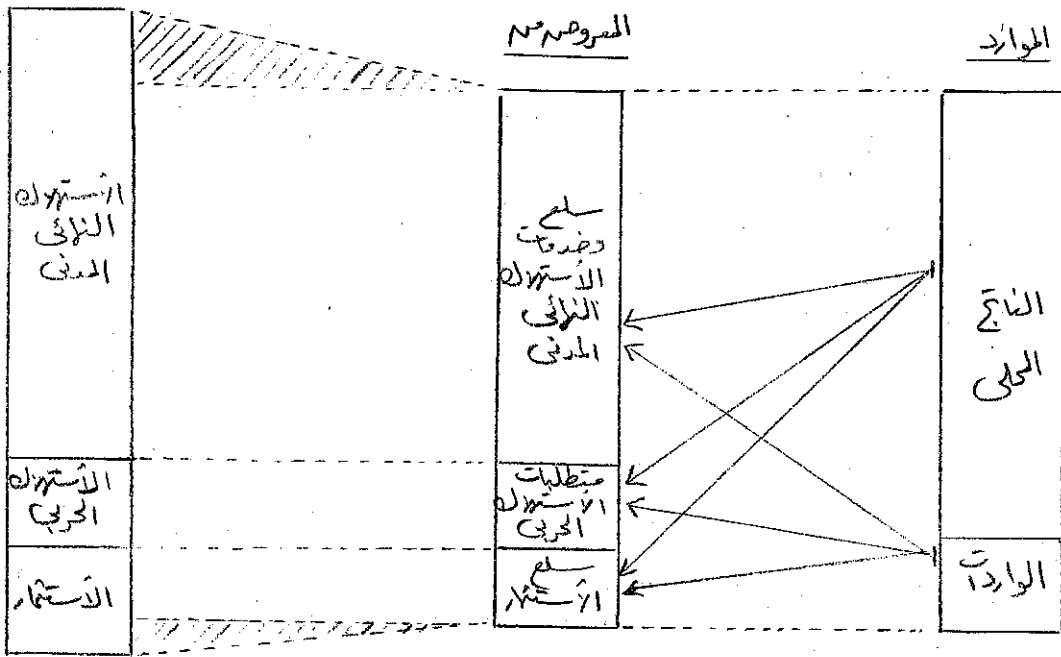 الموارد
المعروض من
الناتج
المحلى
الواردات
سلع
وخدمات
الأستهلاك
النهائى
المدنى
متطلبات
الأستهلاك
الحربى
سلع
الأستثمار
الأستهلاك
النهائى
المدنى
الأستهلاك
الحربى
الأستثمار